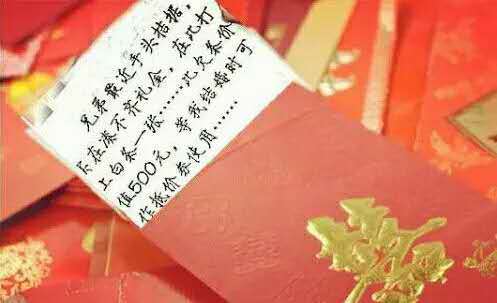 兄弟最近手头拮据，
下在凑不齐礼金，在此打
上白条一张……此次条价
值500元，等我结婚时可
作抵价券使用……